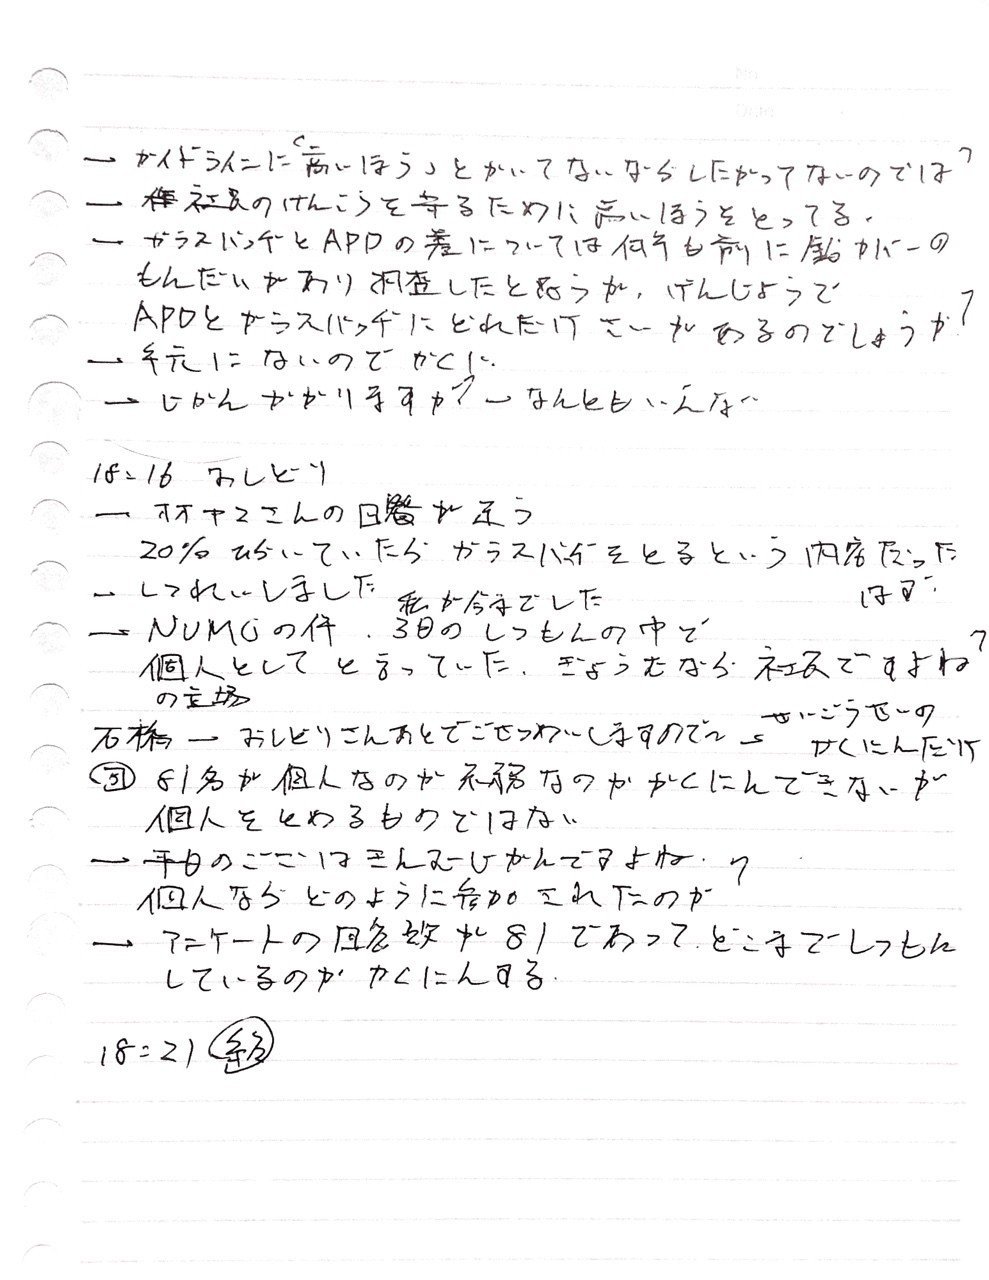 → ガイドラインに「高いほう」とかいてないならしたがってないのでは?
→ 社員のけんこうを守るために高いほうをとってる.
→ ガラスバッヂとAPDの差については何年も前に鉛カバーの
もんだいがあり調査したと思うが、げんじょうで
APDとガラスバッヂにどれだけさいがあるのでしょうか?
→ 手元にないのでかくに.
→ じかんかかりますか? → なんともいえない
18:16 おしどり
→ オオヤマさんの回答が足う
20% ひらいていたらガラスバッヂをとるという内容だった
はず.
→ しつれいしました 私が今までした
→ NUMOの件. 3日のしつもんの中で
個人としてと言っていた. ぎょうむなら社員ですよね?
の立場
石橋 → おしどりさんあとでごせつめいしますので〜 → せいごうせいの
かくにんだけ
81名が個人なのか業務なのかかくにんできないが
個人をとめるものではない
→ 平日のごごはきんむじかんですよね. ?
個人ならどのように参加されたのか
→ アンケートの回答数が81であって. どこまでしつもん
しているのかかくにんする.
18:21 終